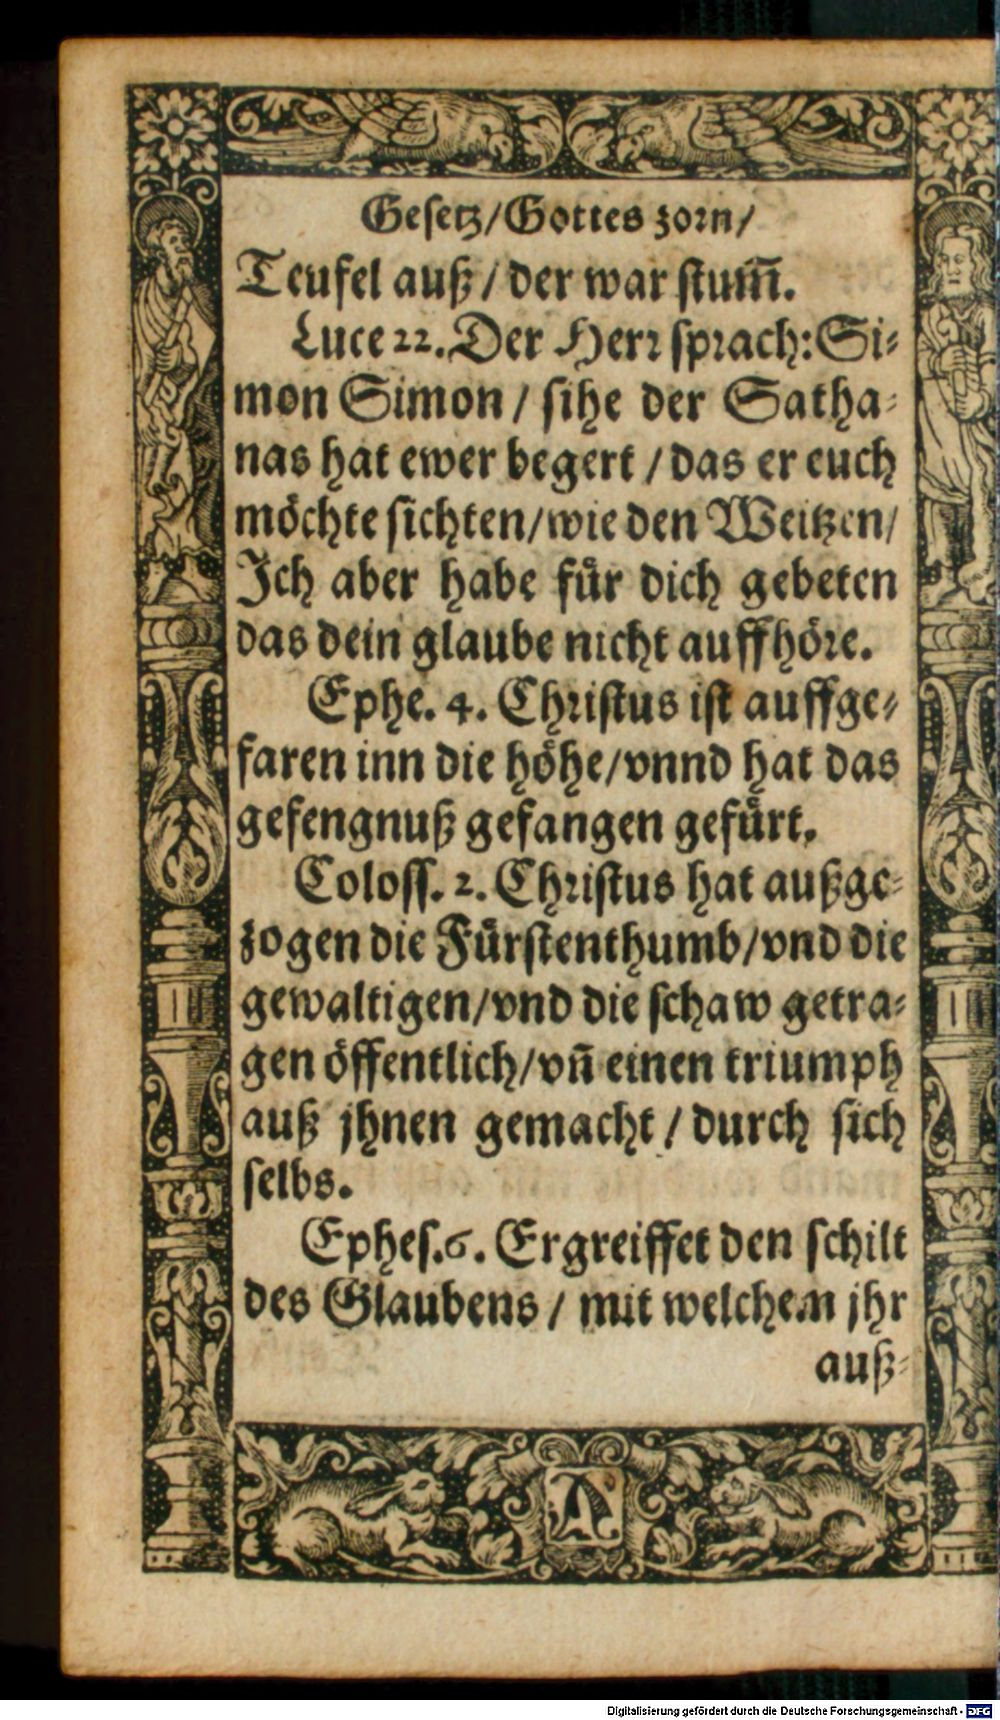 Gesetz/Gottes zorn/
Teufel auß/der war stum̄.
Luce 22. Der Herr sprach: Si⸗
mon Simon/sihe der Satha⸗
nas hat ewer begert/das er euch
möchte sichten/wie den Weitzen/
Ich aber habe für dich gebeten
das dein glaube nicht auffhöre.
Ephe. 4. Christus ist auffge⸗
faren inn die höhe/vnnd hat das
gefengnuß gefangen gefürt.
Coloss. 2. Christus hat außge⸗
zogen die Fürstenthumb/vnd die
gewaltigen/vnd die schaw getra⸗
gen öffentlich/vn̄ einen triumph
auß jhnen gemacht/durch sich
selbs.
Ephes. 6. Ergreiffet den schilt
des Glaubens/mit welchem jhr
auß⸗
A
Digitalisierung gefördert durch die Deutsche Forschungsgemeinschaft - DFG